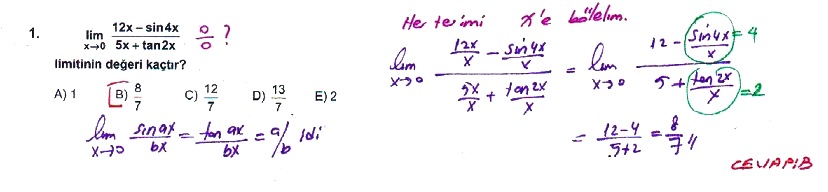 1. lim x→0 (12x – sin4x)/(5x + tan2x) 0/0 ?
limitinin değeri kaçtır?
A) 1 B) 8/7 C) 12/7 D) 13/7 E) 2
lim x→0 sinax/bx = tanax/bx = a/b idi
Her terimi x'e bölelim.
lim x→0 (12x/x – sin4x/x)/(5x/x + tan2x/x) = lim x→0 (12 – sin4x/x)/(5 + tan2x/x) =4 =2
= (12–4)/(5+2) = 8/7 //
CEVAP B